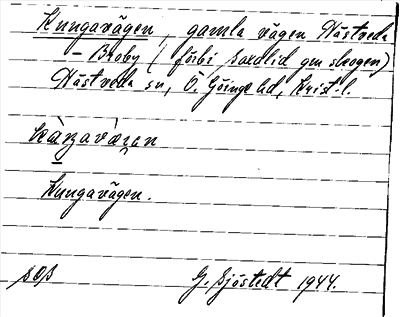 Kungavägen, gamla vägen Hästveda
- Broby (förbi Saxlid gm skogen)
Hästveda sn, Ö. Göinge hd, Krist. l.
Kungavägen.
G. Sjöstedt 1944.